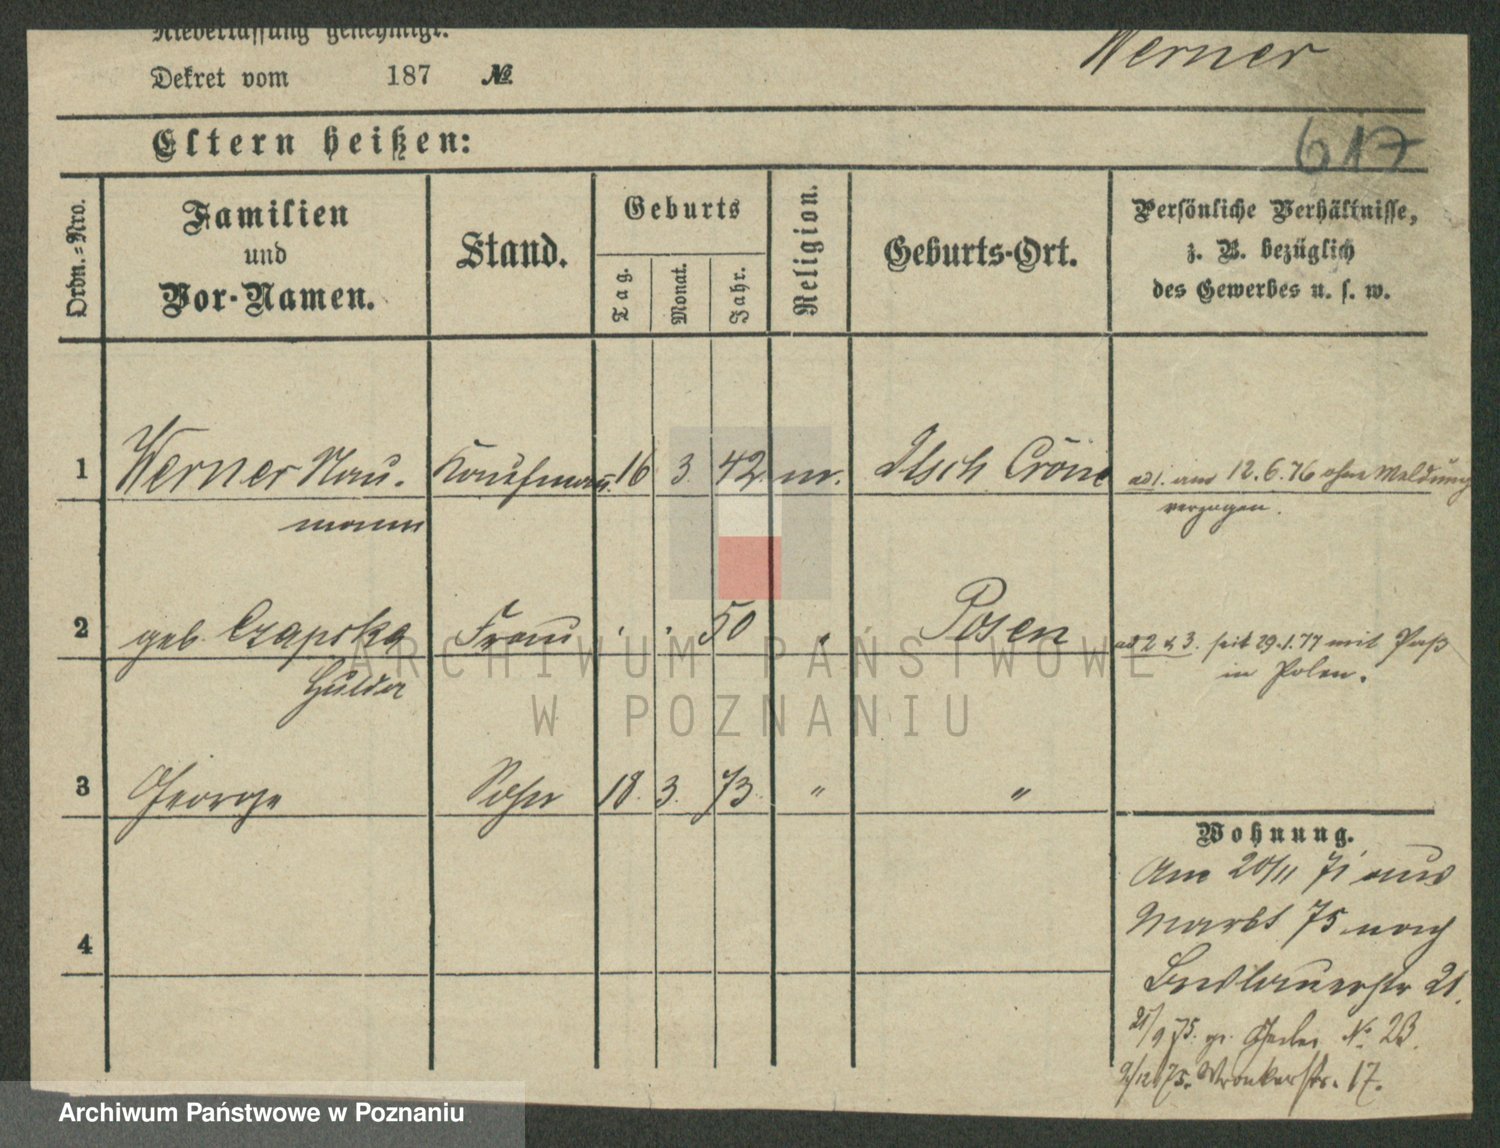 Niederlassung genehmigt.
Werner
Dekret vom 187 №
Eltern heißen:
617
Ordn.=Nro.
Familien
und
Vor-Namen.
Stand.
Geburts
Tag.
Monat.
Jahr.
Religion.
Geburts-Ort.
Persönliche Verhältnisse,
z. B. bezüglich
des Gewerbes u. s. w.
1 Werner Nau- Kaufmann 16 3 42 m. Dtsch Crone ad 1. am 12.6.76 ohne Meldung
mann verzogen.
2 geb. Czapska Frau 50 Posen ad 2 & 3. seit 29.1.77 mit Paß
Hulda in Polen.
3 George Sohn 18. 3. 73. " "
Wohnung.
Am 20/11 71 aus
Markt 75 nach
Breslauerstr 21.
4
21/9 75. gr. Gerber № 23.
2/12 75. Wronkerstr. 17.
ARCHIWUM PAŃSTWOWE
W POZNANIU
Archiwum Państwowe w Poznaniu